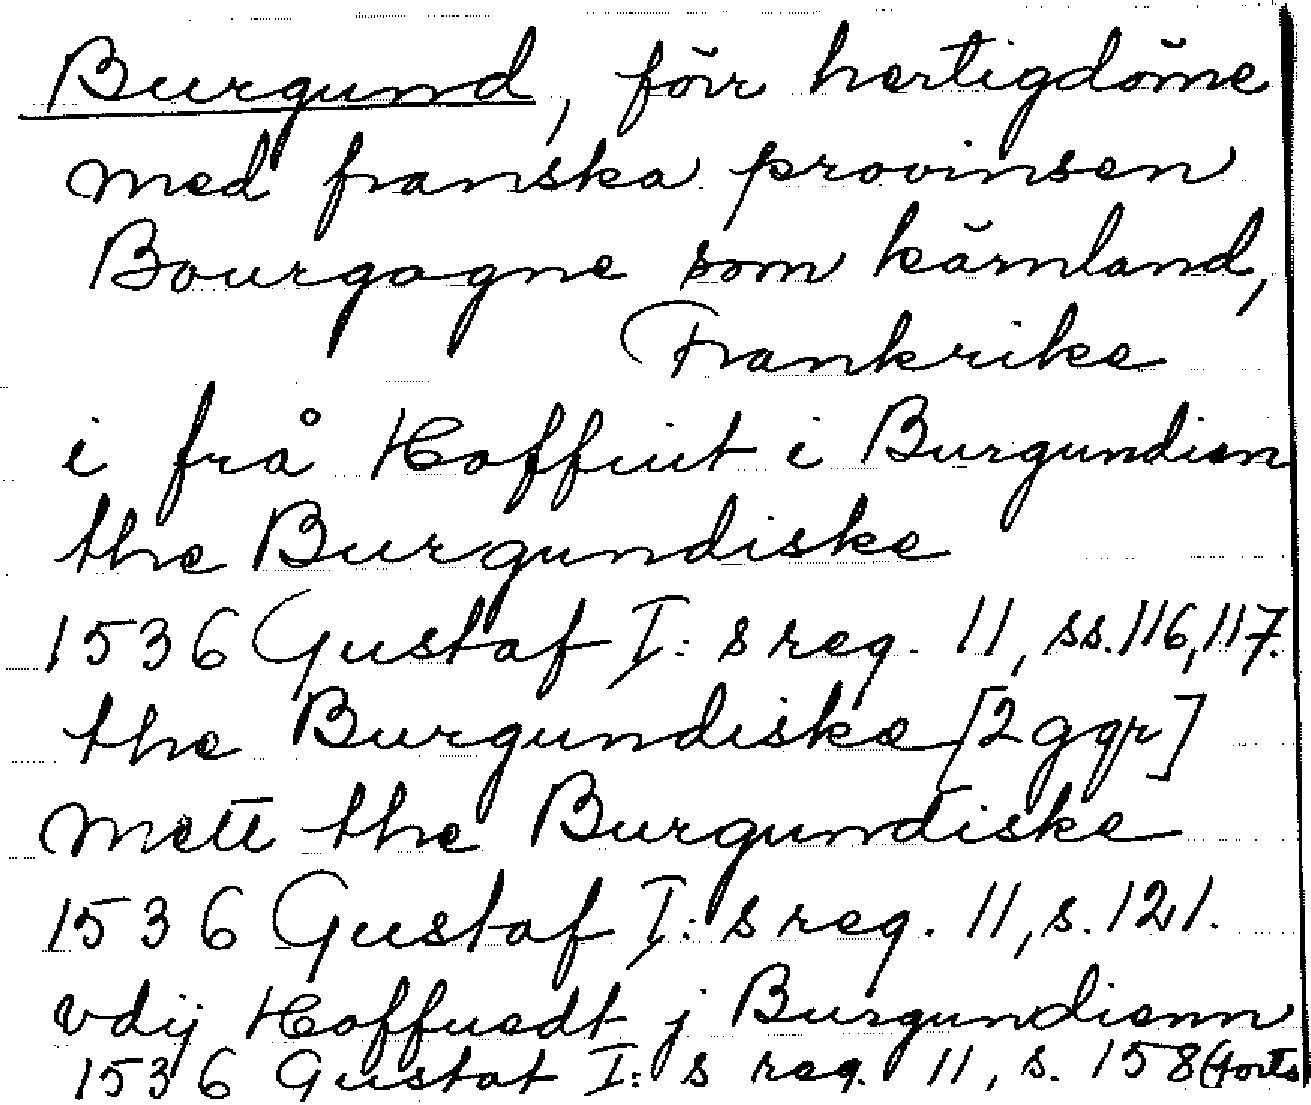 Burgund, förr hertigdöme
med franska provinsen
Bourgogne som kärnland,
Frankrike
i frå Hoffuit i Burgundien
the Burgundiske
1536 Gustaf I:s reg. 11, ss. 116, 117.
the Burgundiske [2 ggr]
mett the Burgundiske
1536 Gustaf I:s reg. 11, s. 121.
vdij Hoffuedt j Burgundienn
1536 Gustaf I:s reg. 11, s. 158 (forts